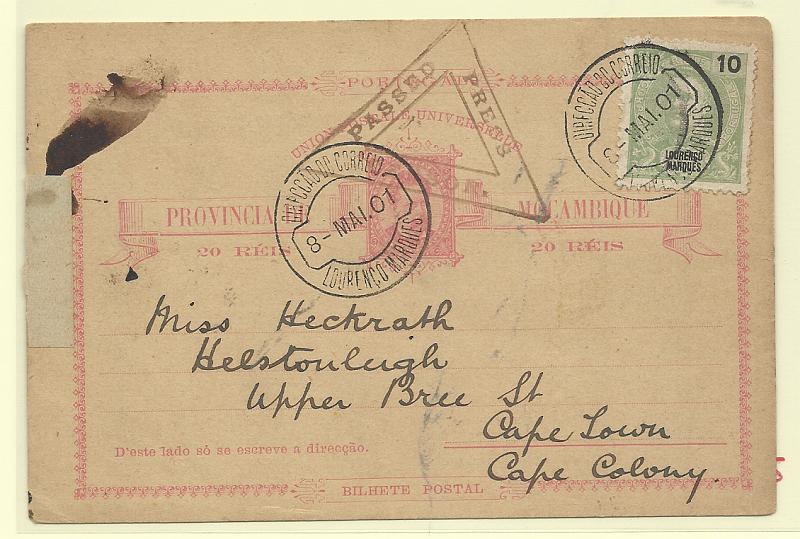 PORTUGAL
UNION POSTALE UNIVERSELLE
PASSED PRESS
10
LOURENÇO
MARQUES
DIRECÇÃO DO CORREIO
8- MAI.01
LOURENÇO MARQUES
DIRECÇÃO DO CORREIO
8- MAI.01
LOURENÇO MARQUES
PROVINCIA DE MOÇAMBIQUE
20 RÉIS 20 RÉIS
Miss Heckrath
Helstonleigh
Upper Bree St
Cape Town
Cape Colony.
D'este lado só se escreve a direcção.
BILHETE POSTAL